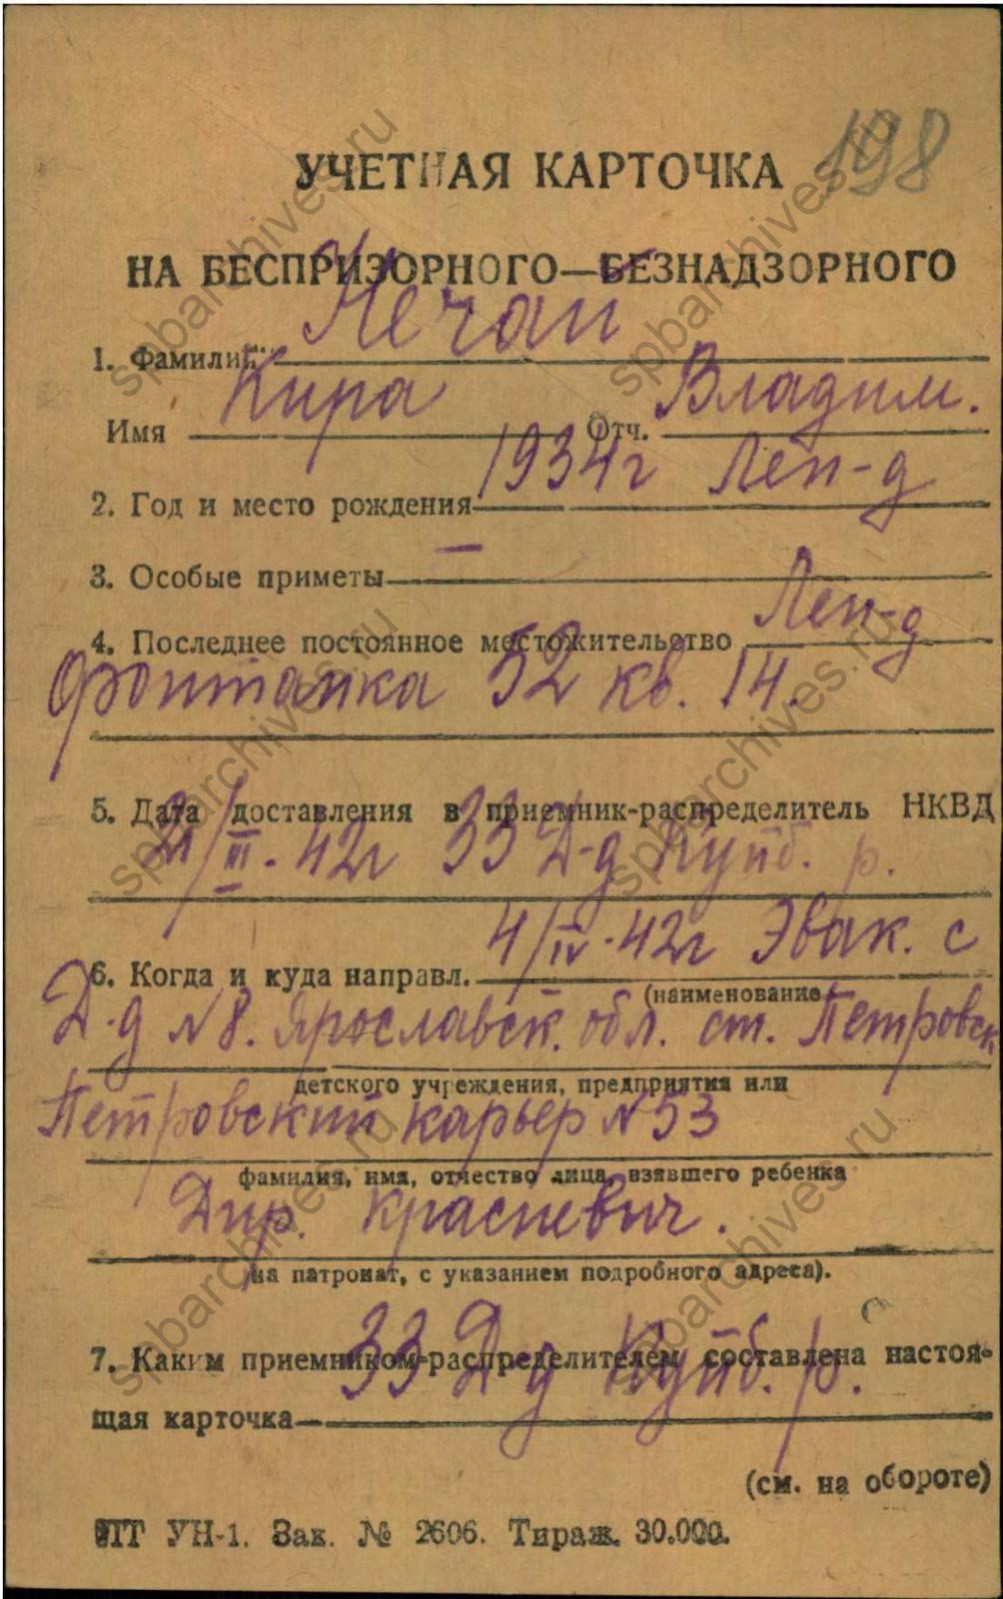 198
УЧЕТНАЯ КАРТОЧКА
НА БЕСПРИЗОРНОГО—БЕЗНАДЗОРНОГО
1. Фамилия Нечай
Имя Кира Отч. Владим.
2. Год и место рождения 1934г Лен-д
3. Особые приметы —
4. Последнее постоянное местожительство Лен-д
Фонтанка 52 кв. 14.
5. Дата доставления в приемник-распределитель НКВД
21/III-42г 33 Д-д Куйб. р.
6. Когда и куда направл. 4/IV-42г Эвак. с
(наименование
Д-д №8. Ярославск. обл. ст. Петровск
детского учреждения, предприятия или
Петровский карьер №53
фамилия, имя, отчество лица, взявшего ребенка
Дир. Красневич.
на патронат, с указанием подробного адреса).
7. Каким приемником-распределителем составлена настоя-
33 Д-д Куйб. р.
щая карточка
(см. на обороте)
УПТ УН-1. Зак. № 2606. Тираж. 30.000.
spbarchives.ru
spbarchives.ru
spbarchives.ru
spbarchives.ru
spbarchives.ru
spbarchives.ru